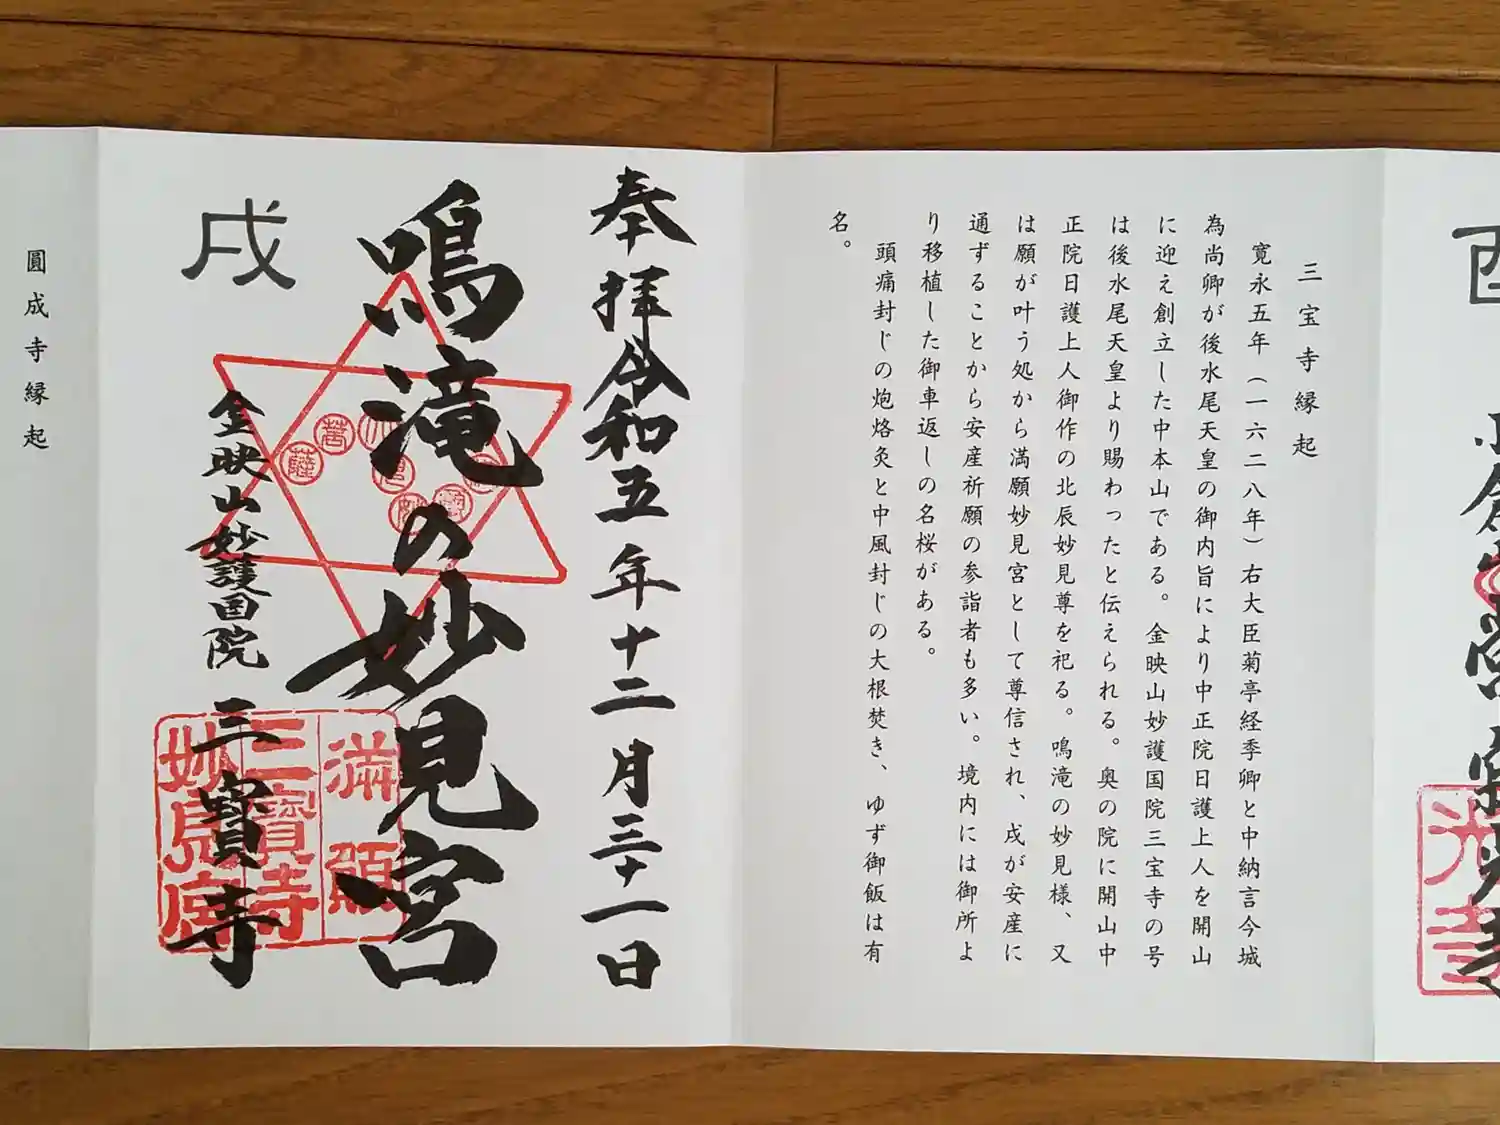 酉
三宝寺縁起
寛永五年（一六二八年）右大臣菊亭経季卿と中納言今城
為尚卿が後水尾天皇の御内旨により中正院日護上人を開山
に迎え創立した中本山である。金映山妙護国院三宝寺の号
は後水尾天皇より賜わったと伝えられる。奥の院に開山中
正院日護上人御作の北辰妙見尊を祀る。鳴滝の妙見様、又
は願が叶う処から満願妙見宮として尊信され、戌が安産に
通ずることから安産祈願の参詣者も多い。境内には御所よ
り移植した御車返しの名桜がある。
頭痛封じの炮烙灸と中風封じの大根焚き、ゆず御飯は有
名。
奉拝令和五年十二月三十一日
鳴滝の妙見宮
戌
金映山妙護国院
三寳寺
満願
三寳寺
妙見宮
圓成寺縁起